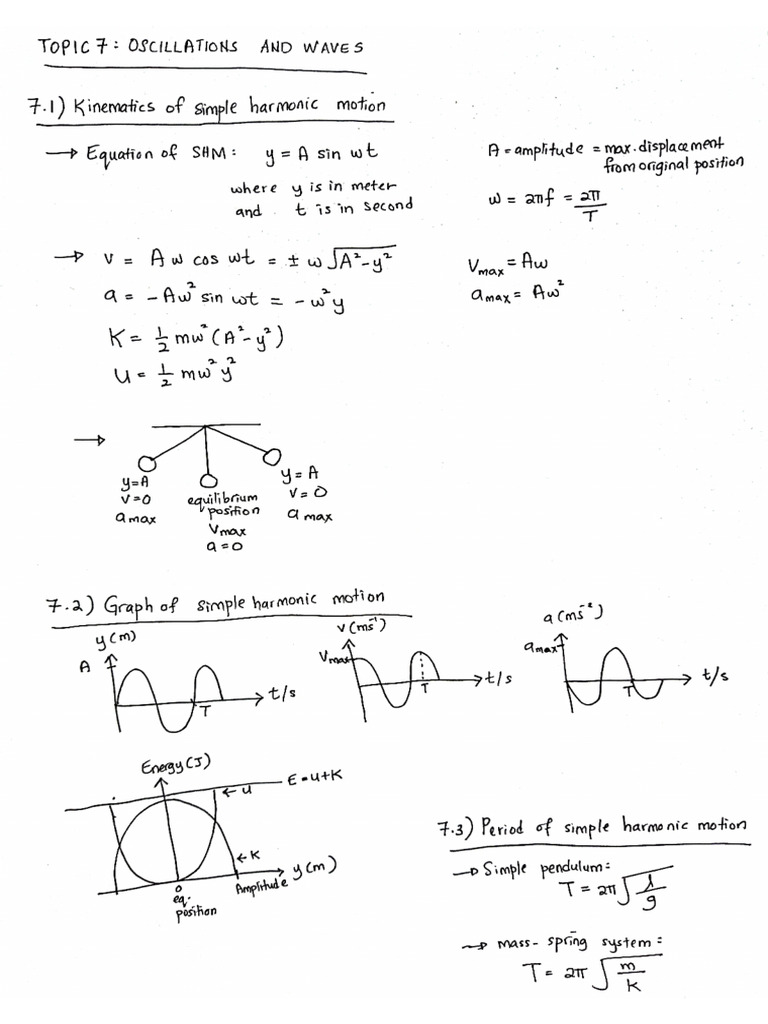 TOPIC 7: OSCILLATIONS AND WAVES
7.1) Kinematics of simple harmonic motion
→ Equation of SHM: y = A sin wt
where y is in meter
and t is in second
A = amplitude = max. displacement
from original position
w = 2πf = 2π/T
→ v = A w cos wt = ± w √(A² - y²)
a = - Aw² sin wt = - w² y
K = 1/2 mw² (A² - y²)
U = 1/2 mw² y²
Vmax = Aw
amax = Aw²
→
y=A
v=0
a max
equilibrium
position
Vmax
a=0
y=A
v=0
a max
7.2) Graph of simple harmonic motion
y(m)
A
T
t/s
v(ms⁻¹)
Vmax
T
t/s
a(ms⁻²)
amax
T
t/s
Energy(J)
E = U+K
← U
← K
y(m)
Amplitude
0
eq.
position
7.3) Period of simple harmonic motion
→ Simple pendulum:
T = 2π √(l/g)
→ mass- spring system:
T = 2π √(m/k)